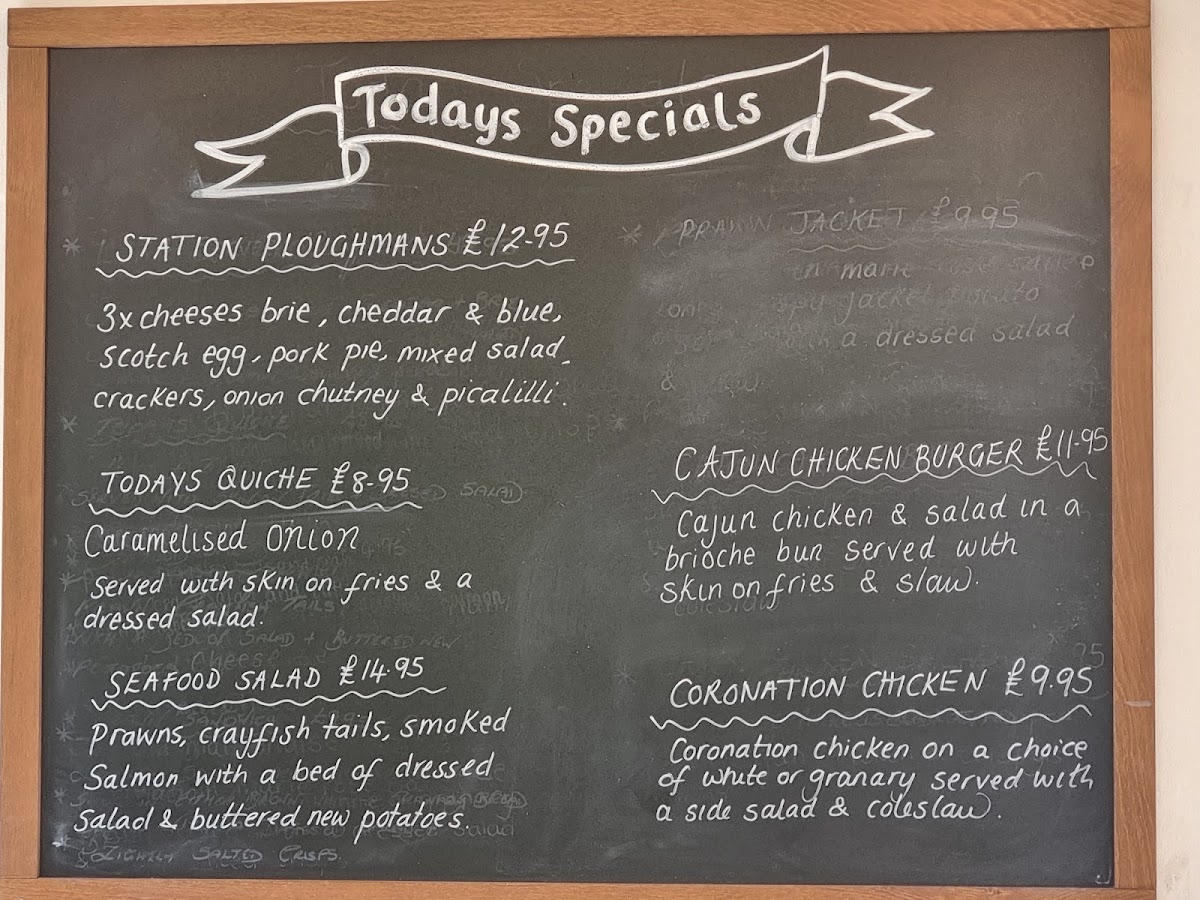 Todays Specials
STATION PLOUGHMANS £12-95
3x cheeses brie, cheddar & blue,
Scotch egg, pork pie, mixed salad,
crackers, onion chutney & picalilli.
TODAYS QUICHE £8-95
Caramelised onion
Served with skin on fries & a
dressed salad.
SEAFOOD SALAD £14.95
Prawns, crayfish tails, smoked
Salmon with a bed of dressed
Salad & buttered new potatoes.
LIGHTLY SALTED CRISPS
PRAWN JACKET £9.95
in marie
jacket potato
with a dressed salad
&
CAJUN CHICKEN BURGER £11-95
Cajun chicken & salad in a
brioche bun served with
skin on fries & slaw.
CORONATION CHICKEN £9.95
Coronation chicken on a choice
of white or granary served with
a side salad & coleslaw.